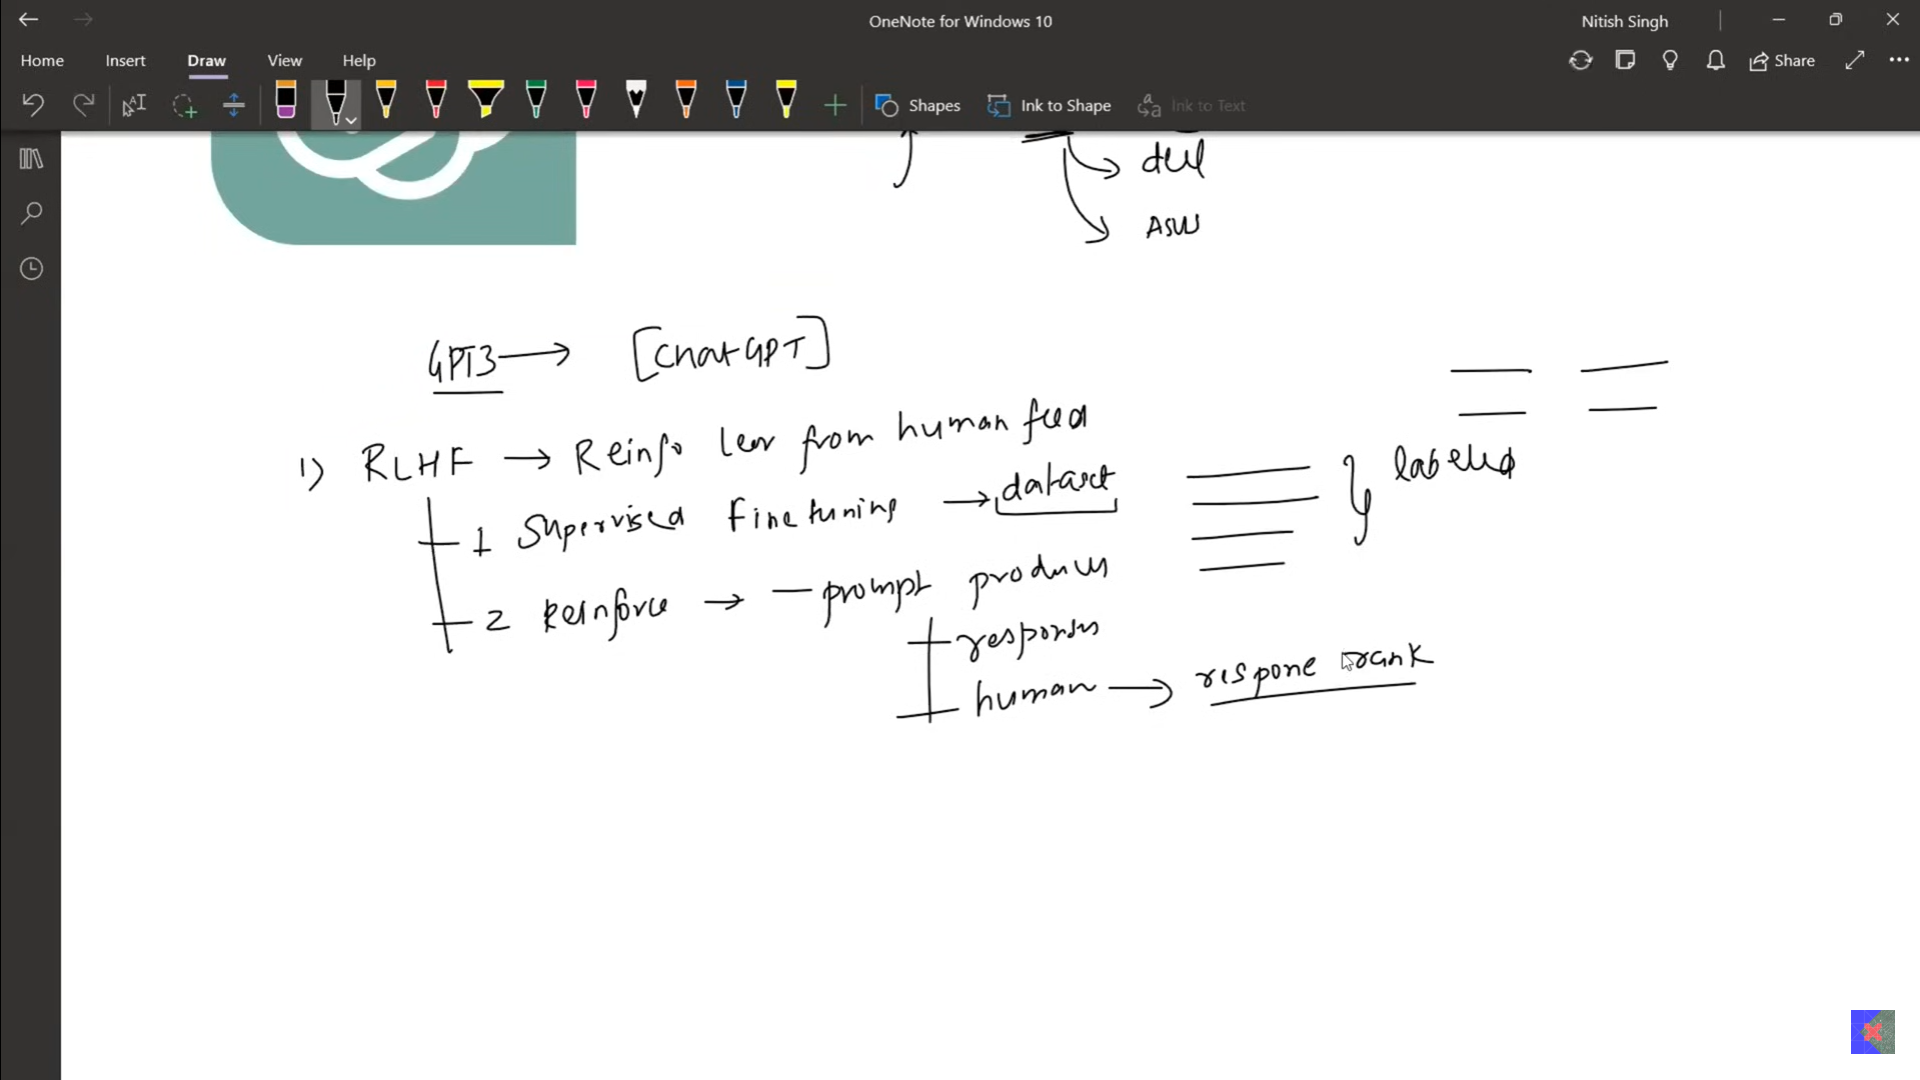 OneNote for Windows 10
Nitish Singh
Home Insert Draw View Help
Share
Shapes Ink to Shape Ink to Text
dell
ASUS
GPT3 → [ChatGPT]
1) RLHF → Reinfo lear from human feed
1 Supervised finetuning → dataset
labelled
2 Reinforce → — prompt produces
responses
human → respone rank